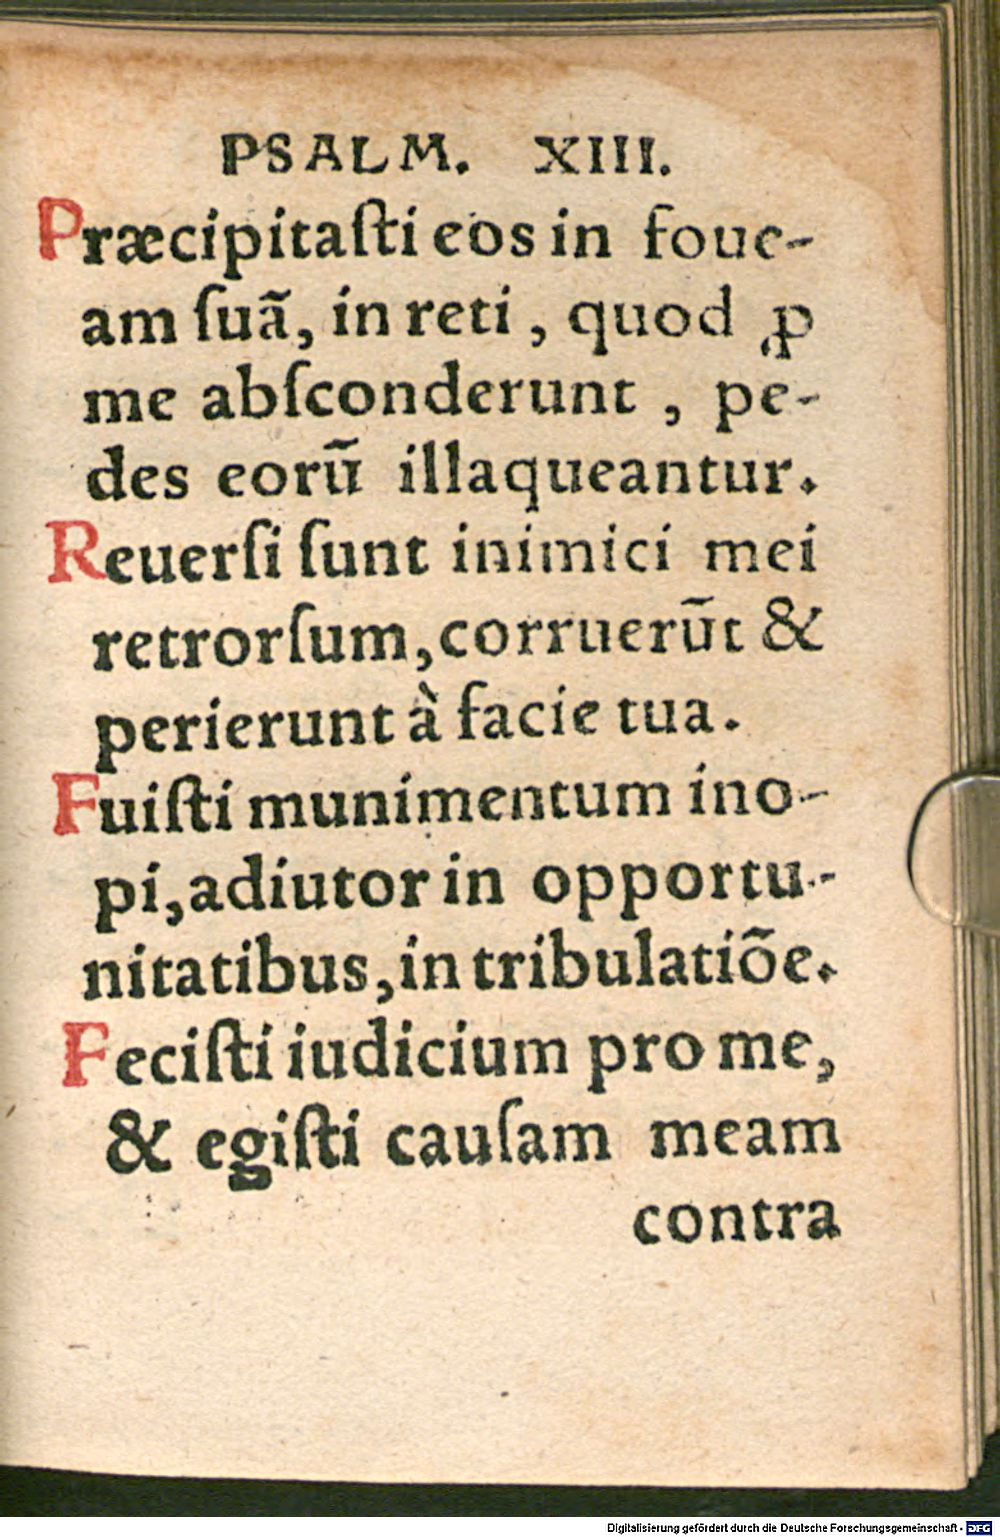 PSALM. XIII.
Præcipitaſti eos in foue-
am ſuã, in reti, quod ꝓ
me abſconderunt, pe-
des eorũ illaqueantur.
Reuerſi ſunt inimici mei
retrorſum, corruerũt &
perierunt à facie tua.
Fuiſti munimentum ino-
pi, adiutor in opportu-
nitatibus, in tribulatiõe.
Feciſti iudicium pro me,
& egiſti cauſam meam
contra
Digitalisierung gefördert durch die Deutsche Forschungsgemeinschaft - DFG